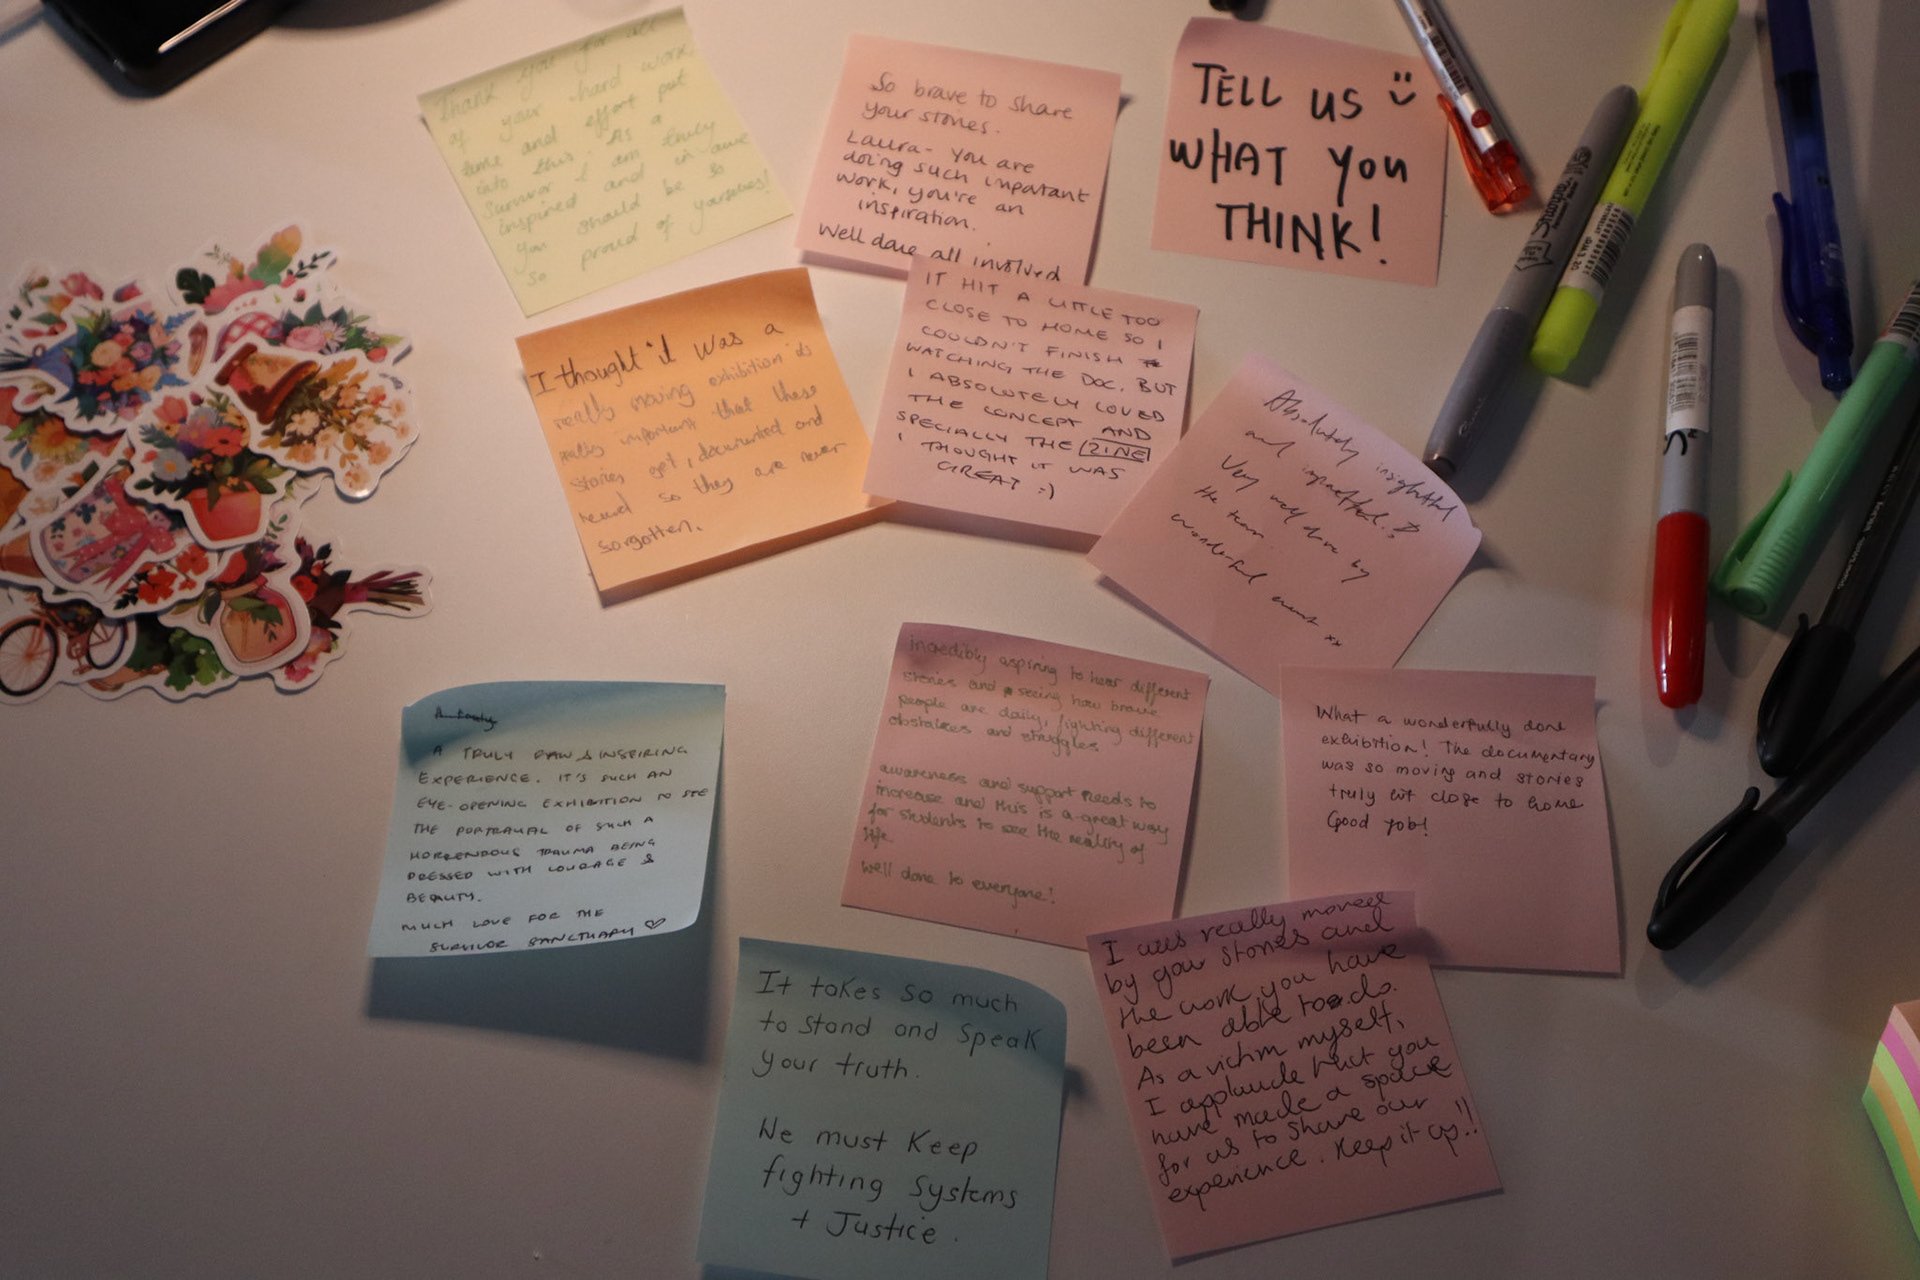 Thank you for all
of your hard work,
time and effort put
into this. As a
survivor I am truly
inspired and in awe
you should be so
so proud of yourselves!
So brave to share
your stories.
Laura - you are
doing such important
work, you're an
inspiration.
Well done all involved
TELL US
WHAT YOU
THINK!
I thought it was a
really moving exhibition its
really important that these
stories get documented and
heard so they are never
forgotten.
IT HIT A LITTLE TOO
CLOSE TO HOME SO I
COULDN'T FINISH
WATCHING THE DOC. BUT
I ABSOLUTELY LOVED
THE CONCEPT AND
SPECIALLY THE ZINE
I THOUGHT IT WAS
GREAT :)
Absolutely insightful
and impactful.
Very well done by
the team.
Wonderful event xx
A TRULY RAW & INSPIRING
EXPERIENCE. IT'S SUCH AN
EYE-OPENING EXHIBITION TO SEE
THE PORTRAYAL OF SUCH A
HORRENDOUS TRAUMA BEING
DRESSED WITH COURAGE &
BEAUTY.
MUCH LOVE FOR THE
SURVIVOR SANCTUARY ♡
incredibly aspiring to hear different
stories and seeing how brave
people are daily, fighting different
obstacles and struggles
awareness and support needs to
increase and this is a great way
for students to see the reality of
life.
well done to everyone!
What a wonderfully done
exhibition! The documentary
was so moving and stories
truly hit close to home
Good job!
It takes so much
to stand and speak
your truth.
We must keep
fighting systems
+ Justice.
I was really moved
by your stories and
the work you have
been able to do.
As a victim myself,
I applaude that you
have made a space
for us to share our
experience. Keep it up!!
Sharpie